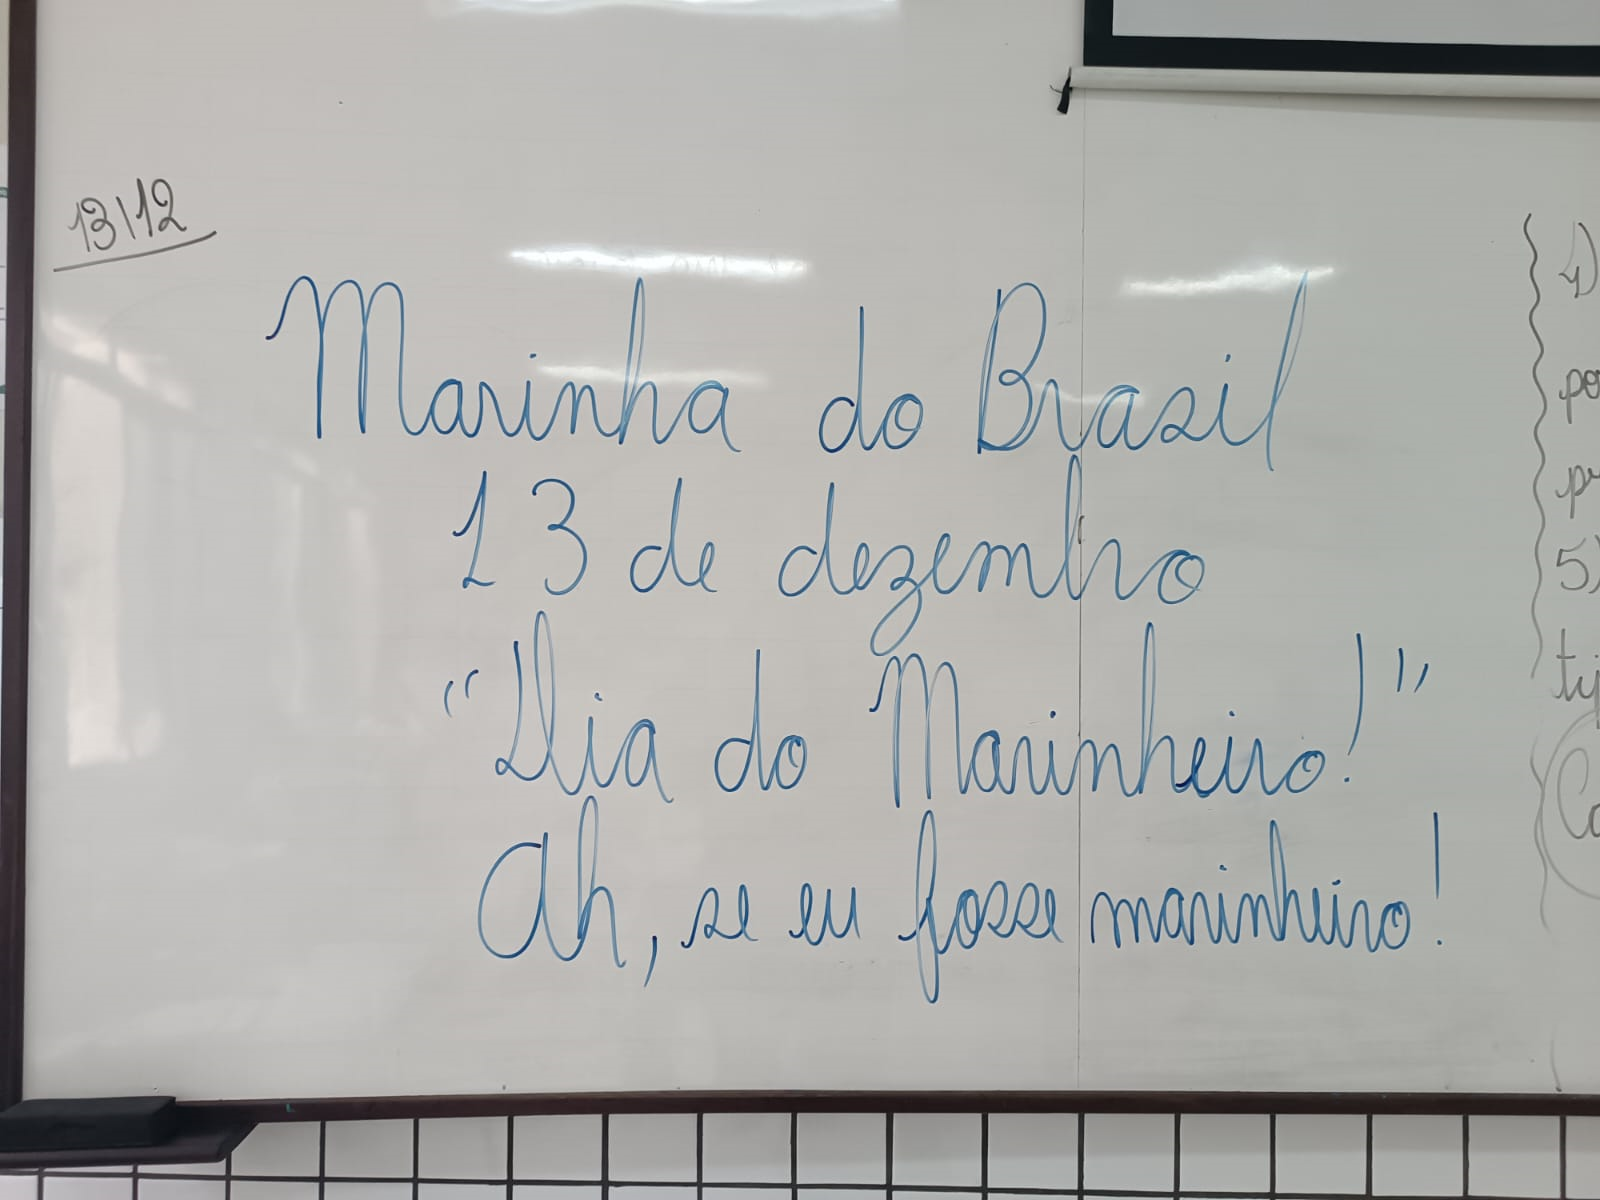 13/12
Marinha do Brasil
13 de dezembro
"Dia do Marinheiro!"
Ah, se eu fosse marinheiro!
4)
5)